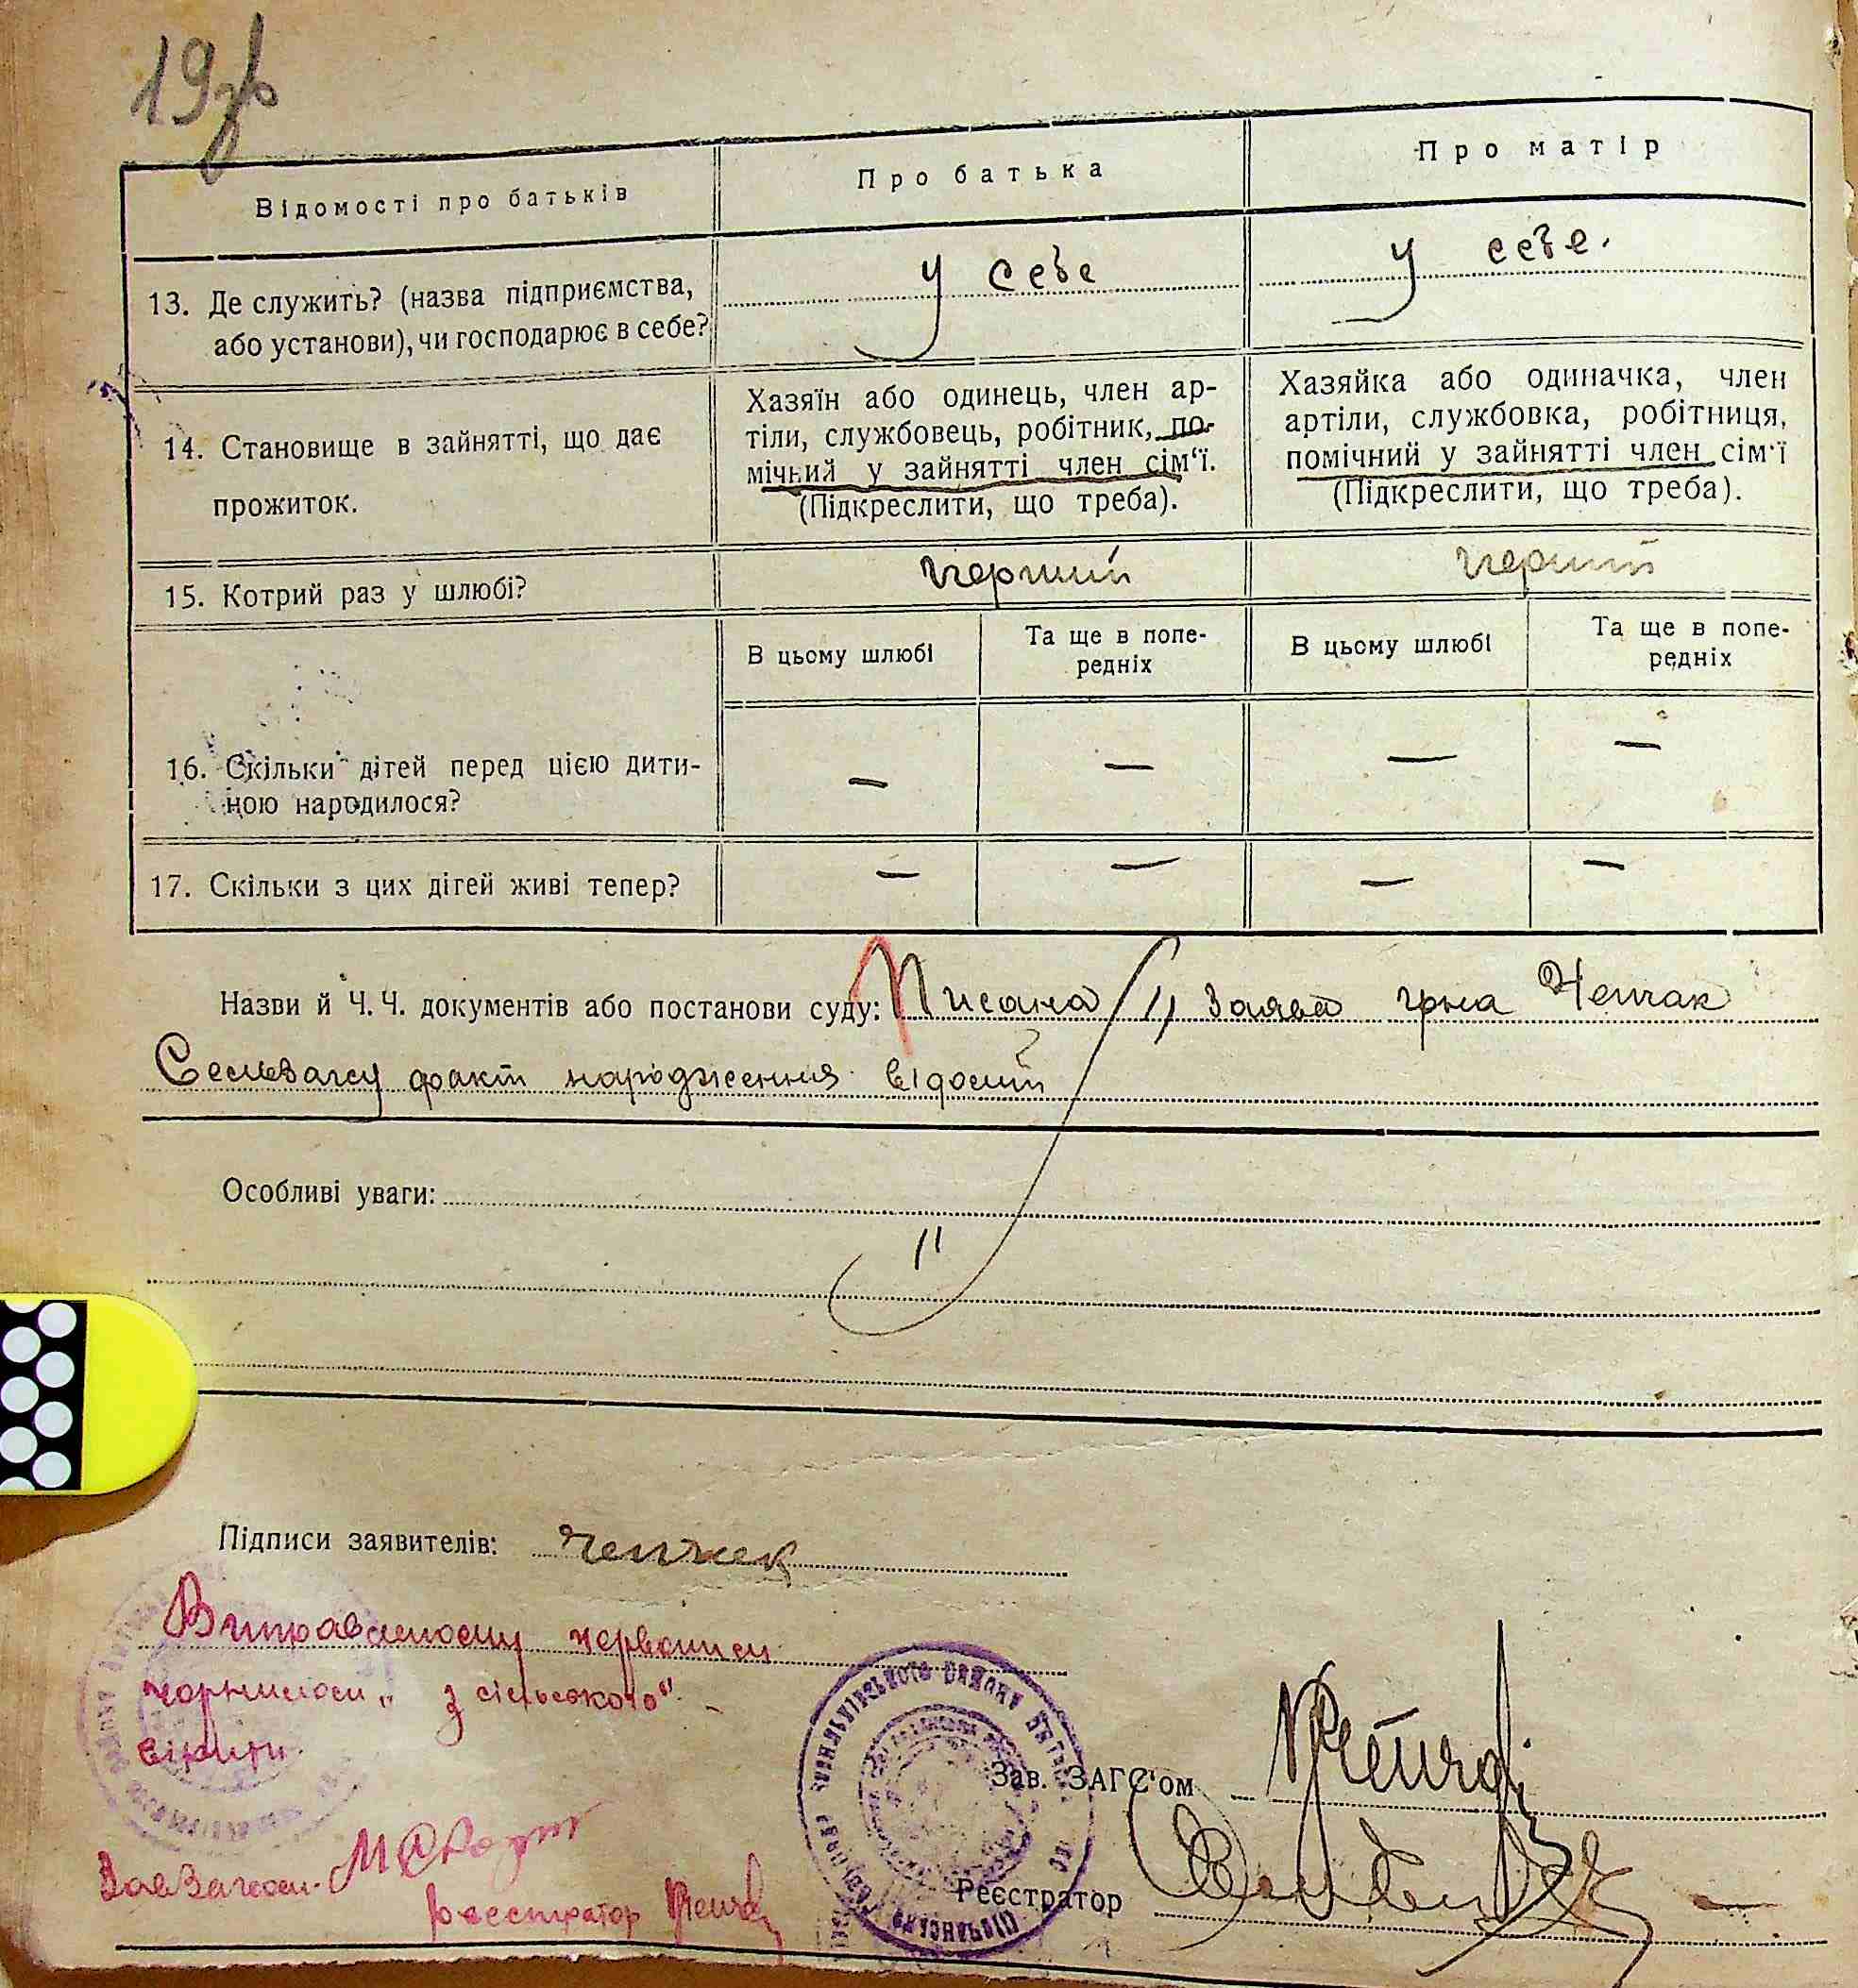 19зв
Відомості про батьків
Про батька
Про матір
13. Де служить? (назва підприємства,
або установи), чи господарює в себе?
у себе
у себе.
14. Становище в зайнятті, що дає
прожиток.
Хазяїн або одинець, член ар-
тіли, службовець, робітник, по-
мічний у зайнятті член сім'ї.
(Підкреслити, що треба).
Хазяйка або одиначка, член
артіли, службовка, робітниця,
помічний у зайнятті член сім'ї
(Підкреслити, що треба).
15. Котрий раз у шлюбі?
перший
перший
В цьому шлюбі
Та ще в попе-
редніх
В цьому шлюбі
Та ще в попе-
редніх
16. Скільки дітей перед цією дити-
ною народилося?
— — — —
17. Скільки з цих дітей живі тепер?
— — — —
Назви й Ч. Ч. документів або постанови суду: Писана заява гр-на
факт народження відомий
Особливі уваги:
Підписи заявителів:
Виправленому червоними
чорнилом „з сільського"
вірити.
Завзагсом
реєстратор
Зав. ЗАГС'ом
Реєстратор